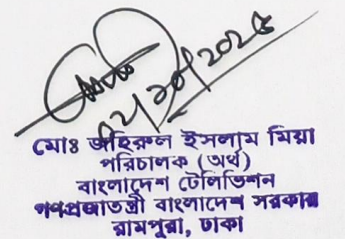 ০৮/১০/২০২৫
মোঃ জহিরুল ইসলাম মিয়া
পরিচালক (অর্থ)
বাংলাদেশ টেলিভিশন
গণপ্রজাতন্ত্রী বাংলাদেশ সরকার
রামপুরা, ঢাকা